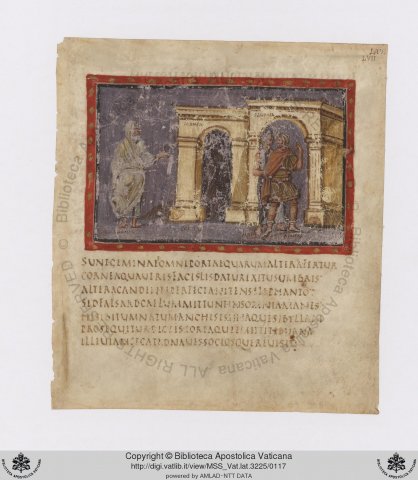 LVII
SUNTGEMINAESOMNIPORTAEQUARUMALTERAFERTUR
CORNEAQUAUERISFACILISDATUREXITUSUMBRIS
ALTERACANDENTIPERFECTANITENSELEPHANTO
SEDFALSAADCAELUMMITTUNTINSOMNIAMANES
HISUBITUMNATUMANCHISESUNAQUESIBYLLAM
PROSEQUITURDICTISPORTAQUEEMITTITEBURNA
ILLEUIAMSECATADNAUISSOCIOSQUEREUISIT
Copyright © Biblioteca Apostolica Vaticana
http://digi.vatlib.it/view/MSS_Vat.lat.3225/0117
powered by AMLAD-NTT DATA